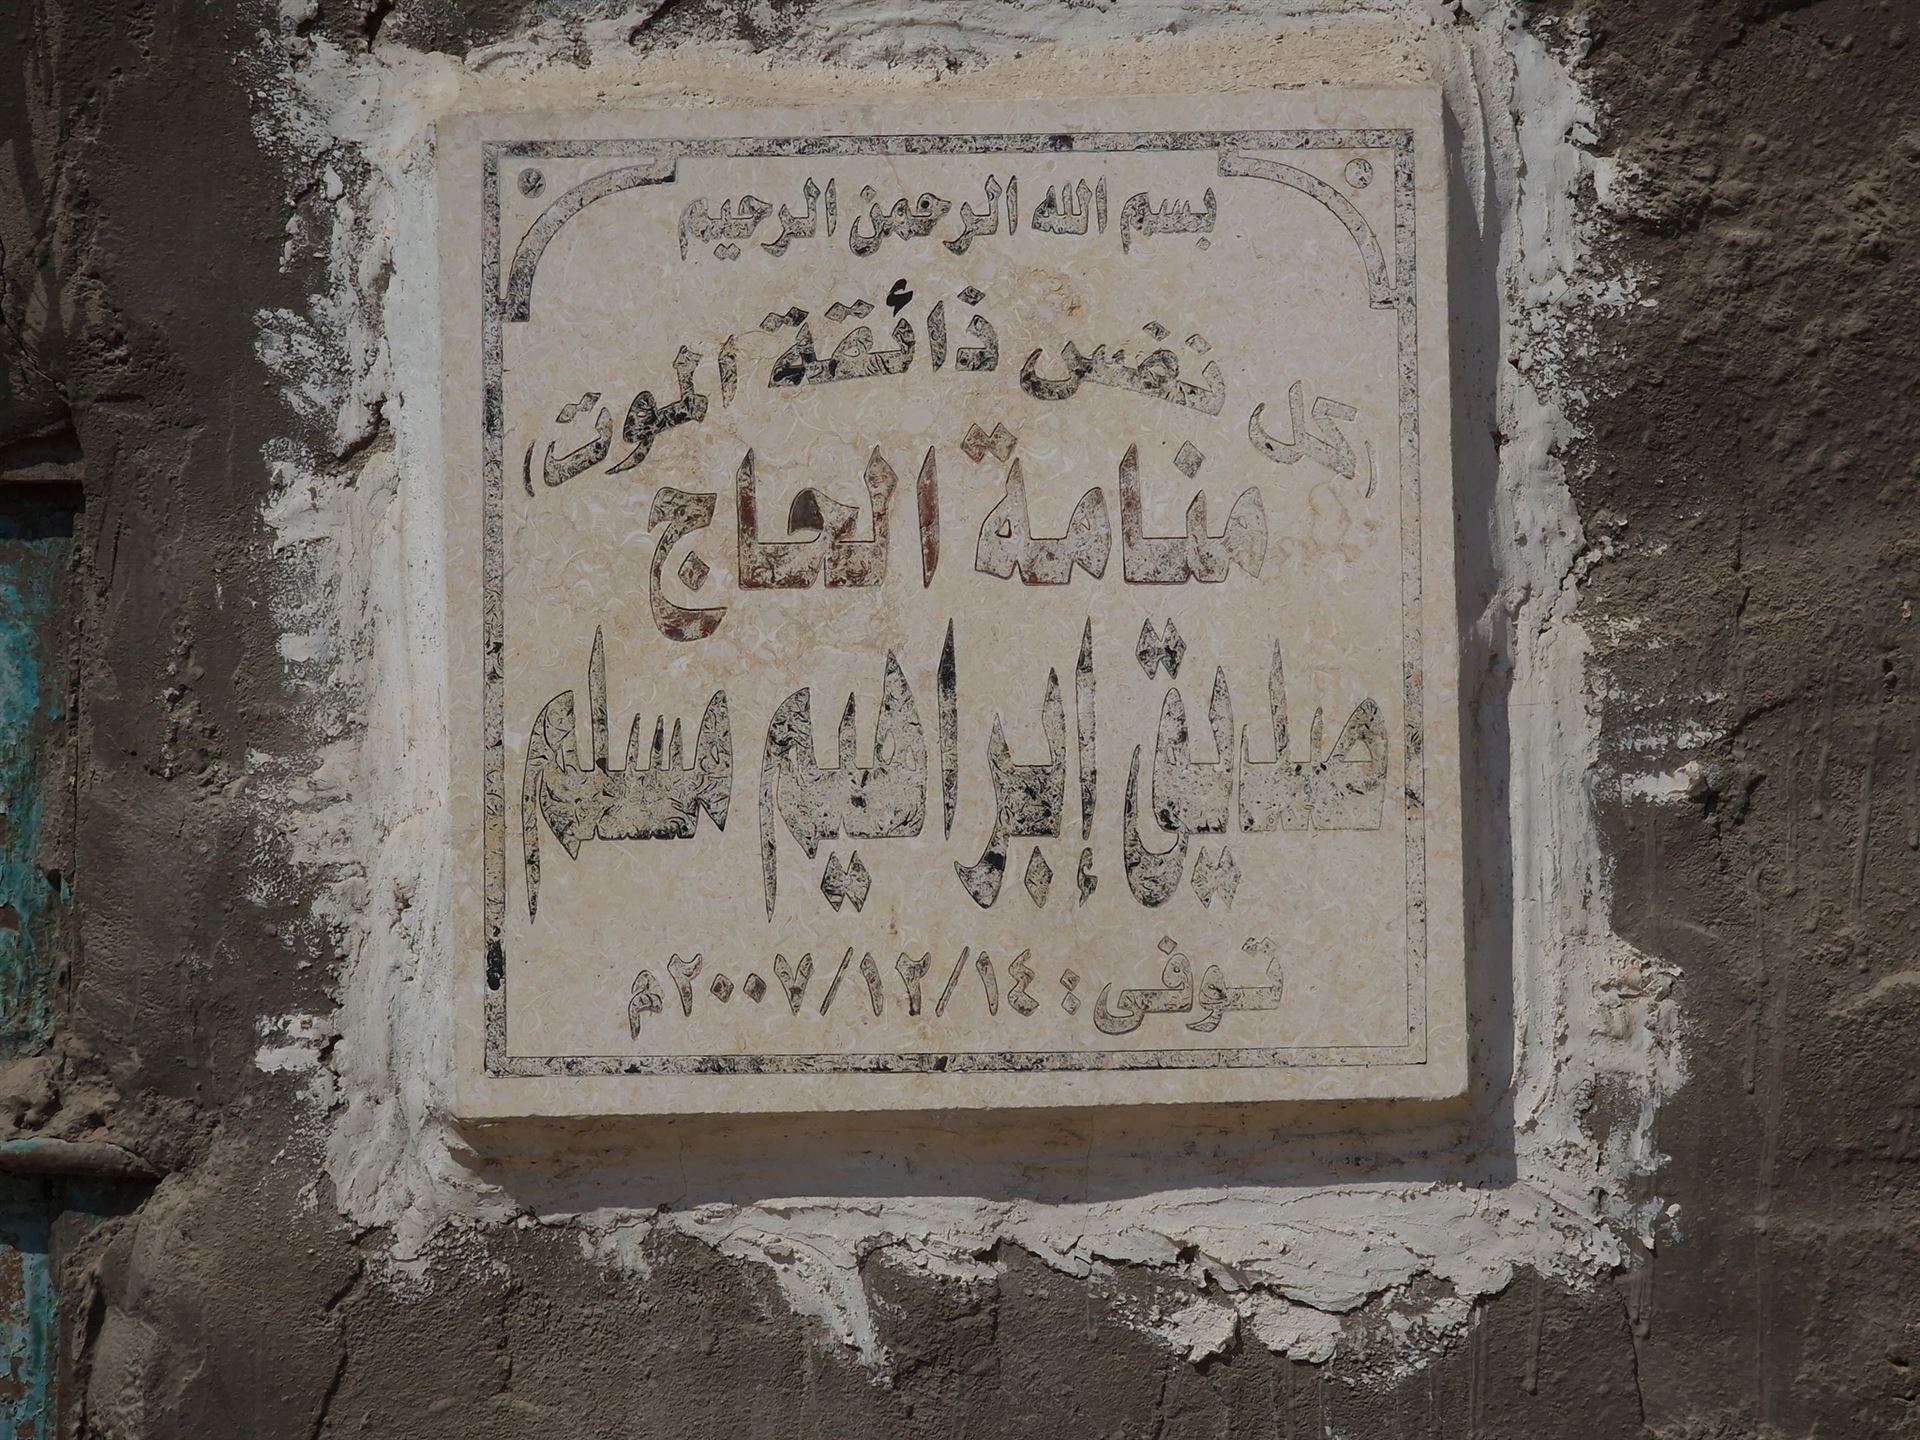 بسم الله الرحمن الرحيم
(كل نفس ذائقة الموت)
منامة الحاج
صديق إبراهيم مسلم
توفى : ١٤/١٢/٢٠٠٧م